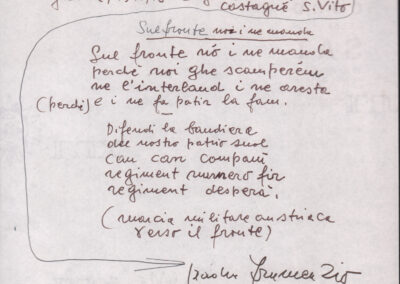 castagnè S. Vito
Sul fronte noi i ne manda
Sul fronte nó i ne manda
perchè noi ghe scamperém
ne l'interland i ne aresta
(perchè) e i ne fa patir la fam.
Difendi la bandiera
del nostro patrio suol
can can compani
regiment numero fir
regiment desperà.
(marcia militare austriaca
verso il fronte)